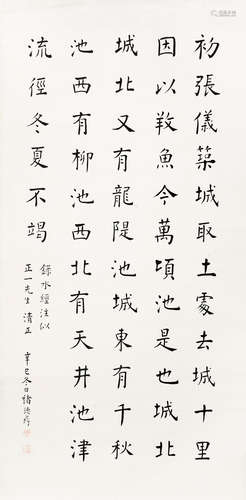 初張儀築城取土處去城十里
因以養魚今萬頃池是也城北
城北又有龍隄池城東有千秋
池西有柳池西北有天井池津
流徑冬夏不竭
錄水經注似
正一先生 清正
辛巳冬日